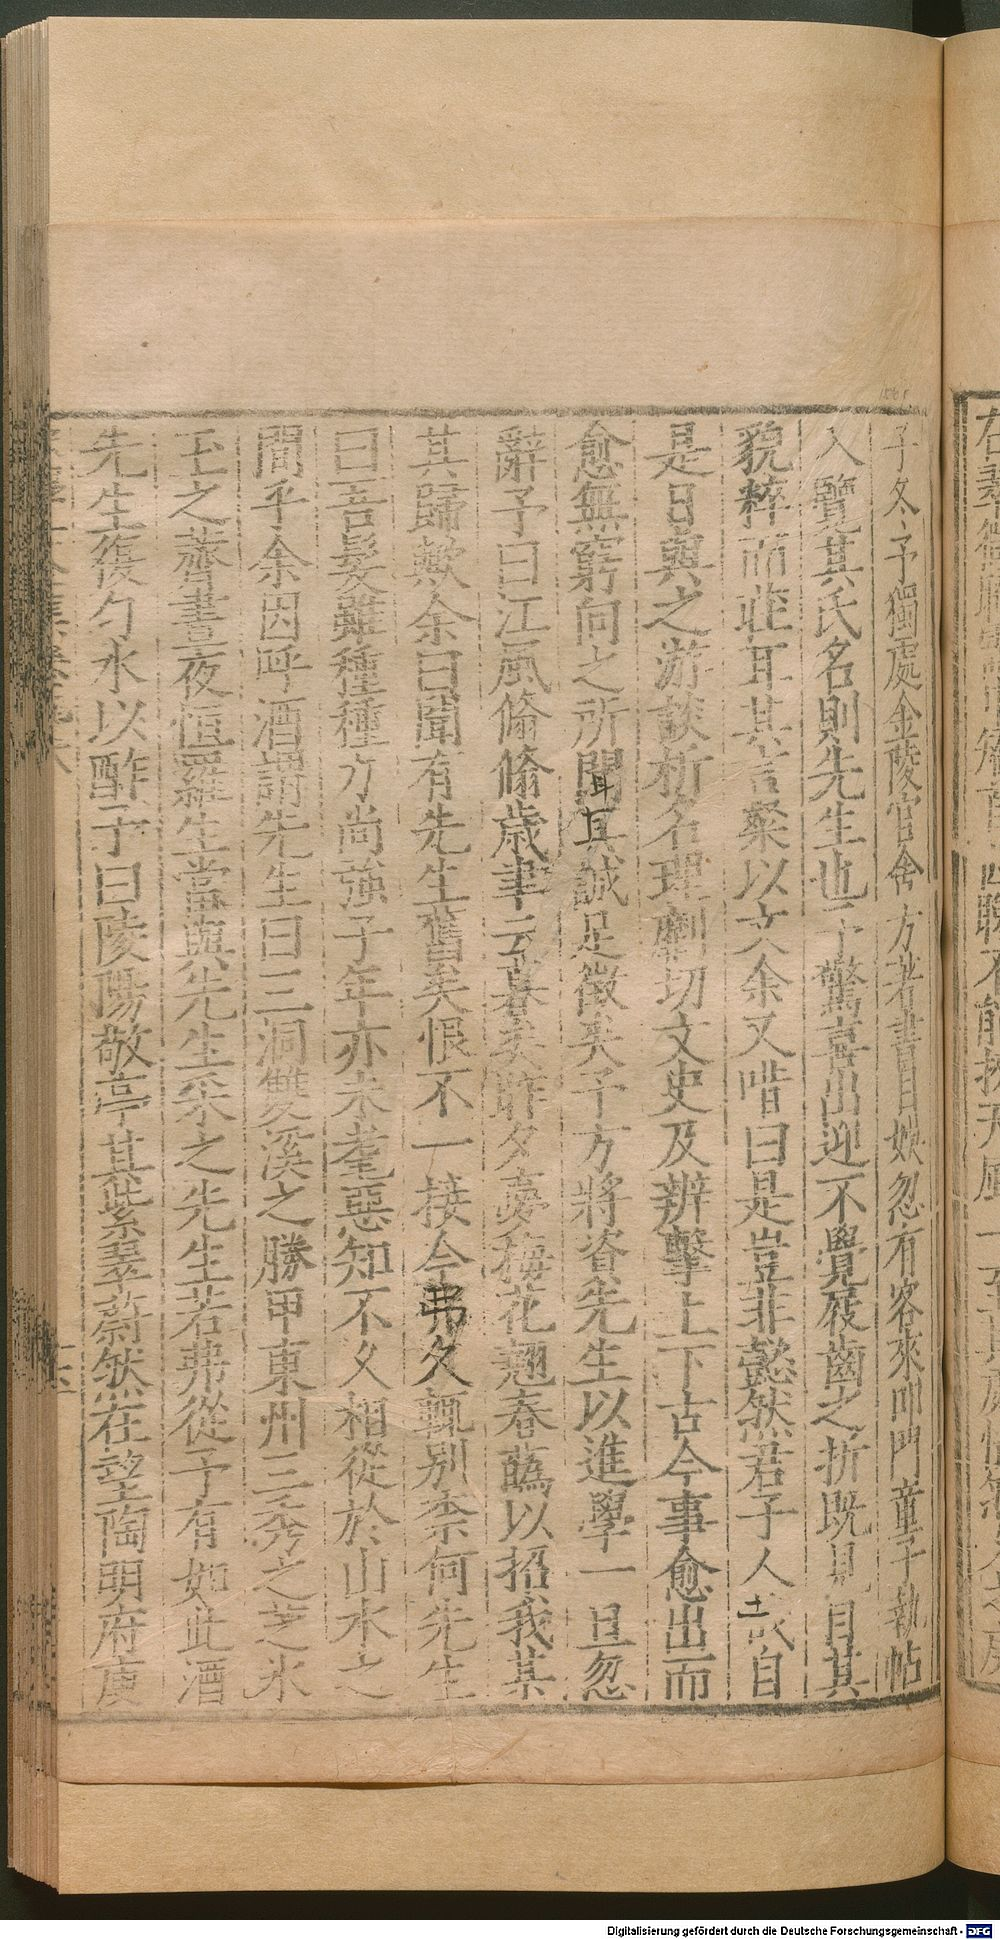 子冬予獨處金陵官舍方著書自娛忽有客來叩門童子執帖
入覽其氏名則先生也予驚喜出迎不覺屐齒之折既見目其
貌粹而莊耳其言粲以文余又喈曰是豈非懿然君子人哉自
是日與之游談析名理劘切文史及辨擊上下古今事愈出而
愈無窮向之所聞其誠足徵矣予方將資先生以進學一旦忽
辭予曰江風翛翛歲聿云暮矣昨夕夢梅花翹春蘤以招我某
其歸歟余曰聞有先生舊矣恨不一接今弗久輒別柰何先生
曰吾髮雖種種方尚強子年亦未耄惡知不久相從於山水之
間乎余因呼酒謂先生曰三洞雙溪之勝甲東州三秀之芝氷
玉之虀晝夜恒羅生當與先生采之先生若弗從予有如此酒
先生復勺水以酢予曰陵陽敬亭其紫翠蔚然在望陶明府庾